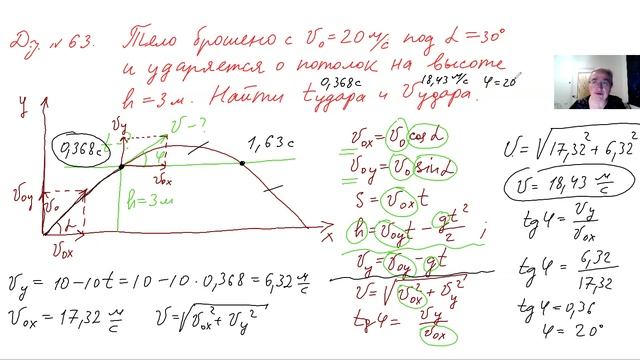 Д.з. №63. Тело брошено с v₀ = 20 м/с под α = 30°
и ударяется о потолок на высоте
0,368 с 18,43 м/с φ = 20°
h = 3 м. Найти tудара и vудара.
y
vy
v - ?
0,368 с
t - ?
φ
1,63 с
v₀y
v₀
vox
h = 3 м
α
v₀x
x
vox = v₀ cos α
voy = v₀ sin α
S = vox t
h = voy t - gt²/2 ;
vy = voy - gt
v = √vox² + vy²
tg φ = vy/vox
v = √17,32² + 6,32²
v = 18,43 м/с
tg φ = vy/vox
tg φ = 6,32/17,32
tg φ = 0,36
φ = 20°
vy = 10 - 10t = 10 - 10 · 0,368 = 6,32 м/с
vox = 17,32 м/с v = √vox² + vy²